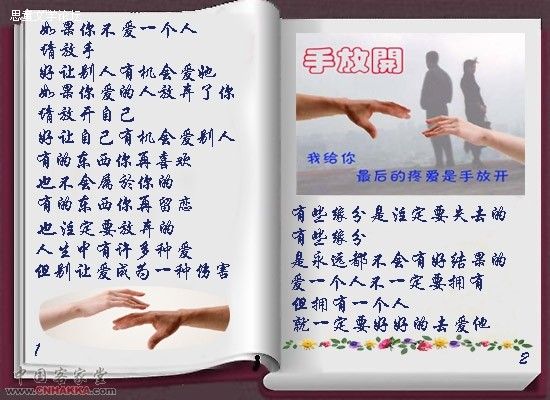 思者文学论坛
如果你不爱一个人
请放手
好让别人有机会爱她
如果你爱的人放弃了你
请放开自己
好让自己有机会爱别人
有的东西你再喜欢
也不会属於你的
有的东西你再留恋
也注定要放弃的
人生中有许多种爱
但别让爱成为一种伤害
1
手放開
我给你
最后的疼爱是手放开
有些缘分是注定要失去的
有些缘分
是永远都不会有好结果的
爱一个人不一定要拥有
但拥有一个人
就一定要好好的去爱他
2
中国客家堂
www.CNHAKKA.com